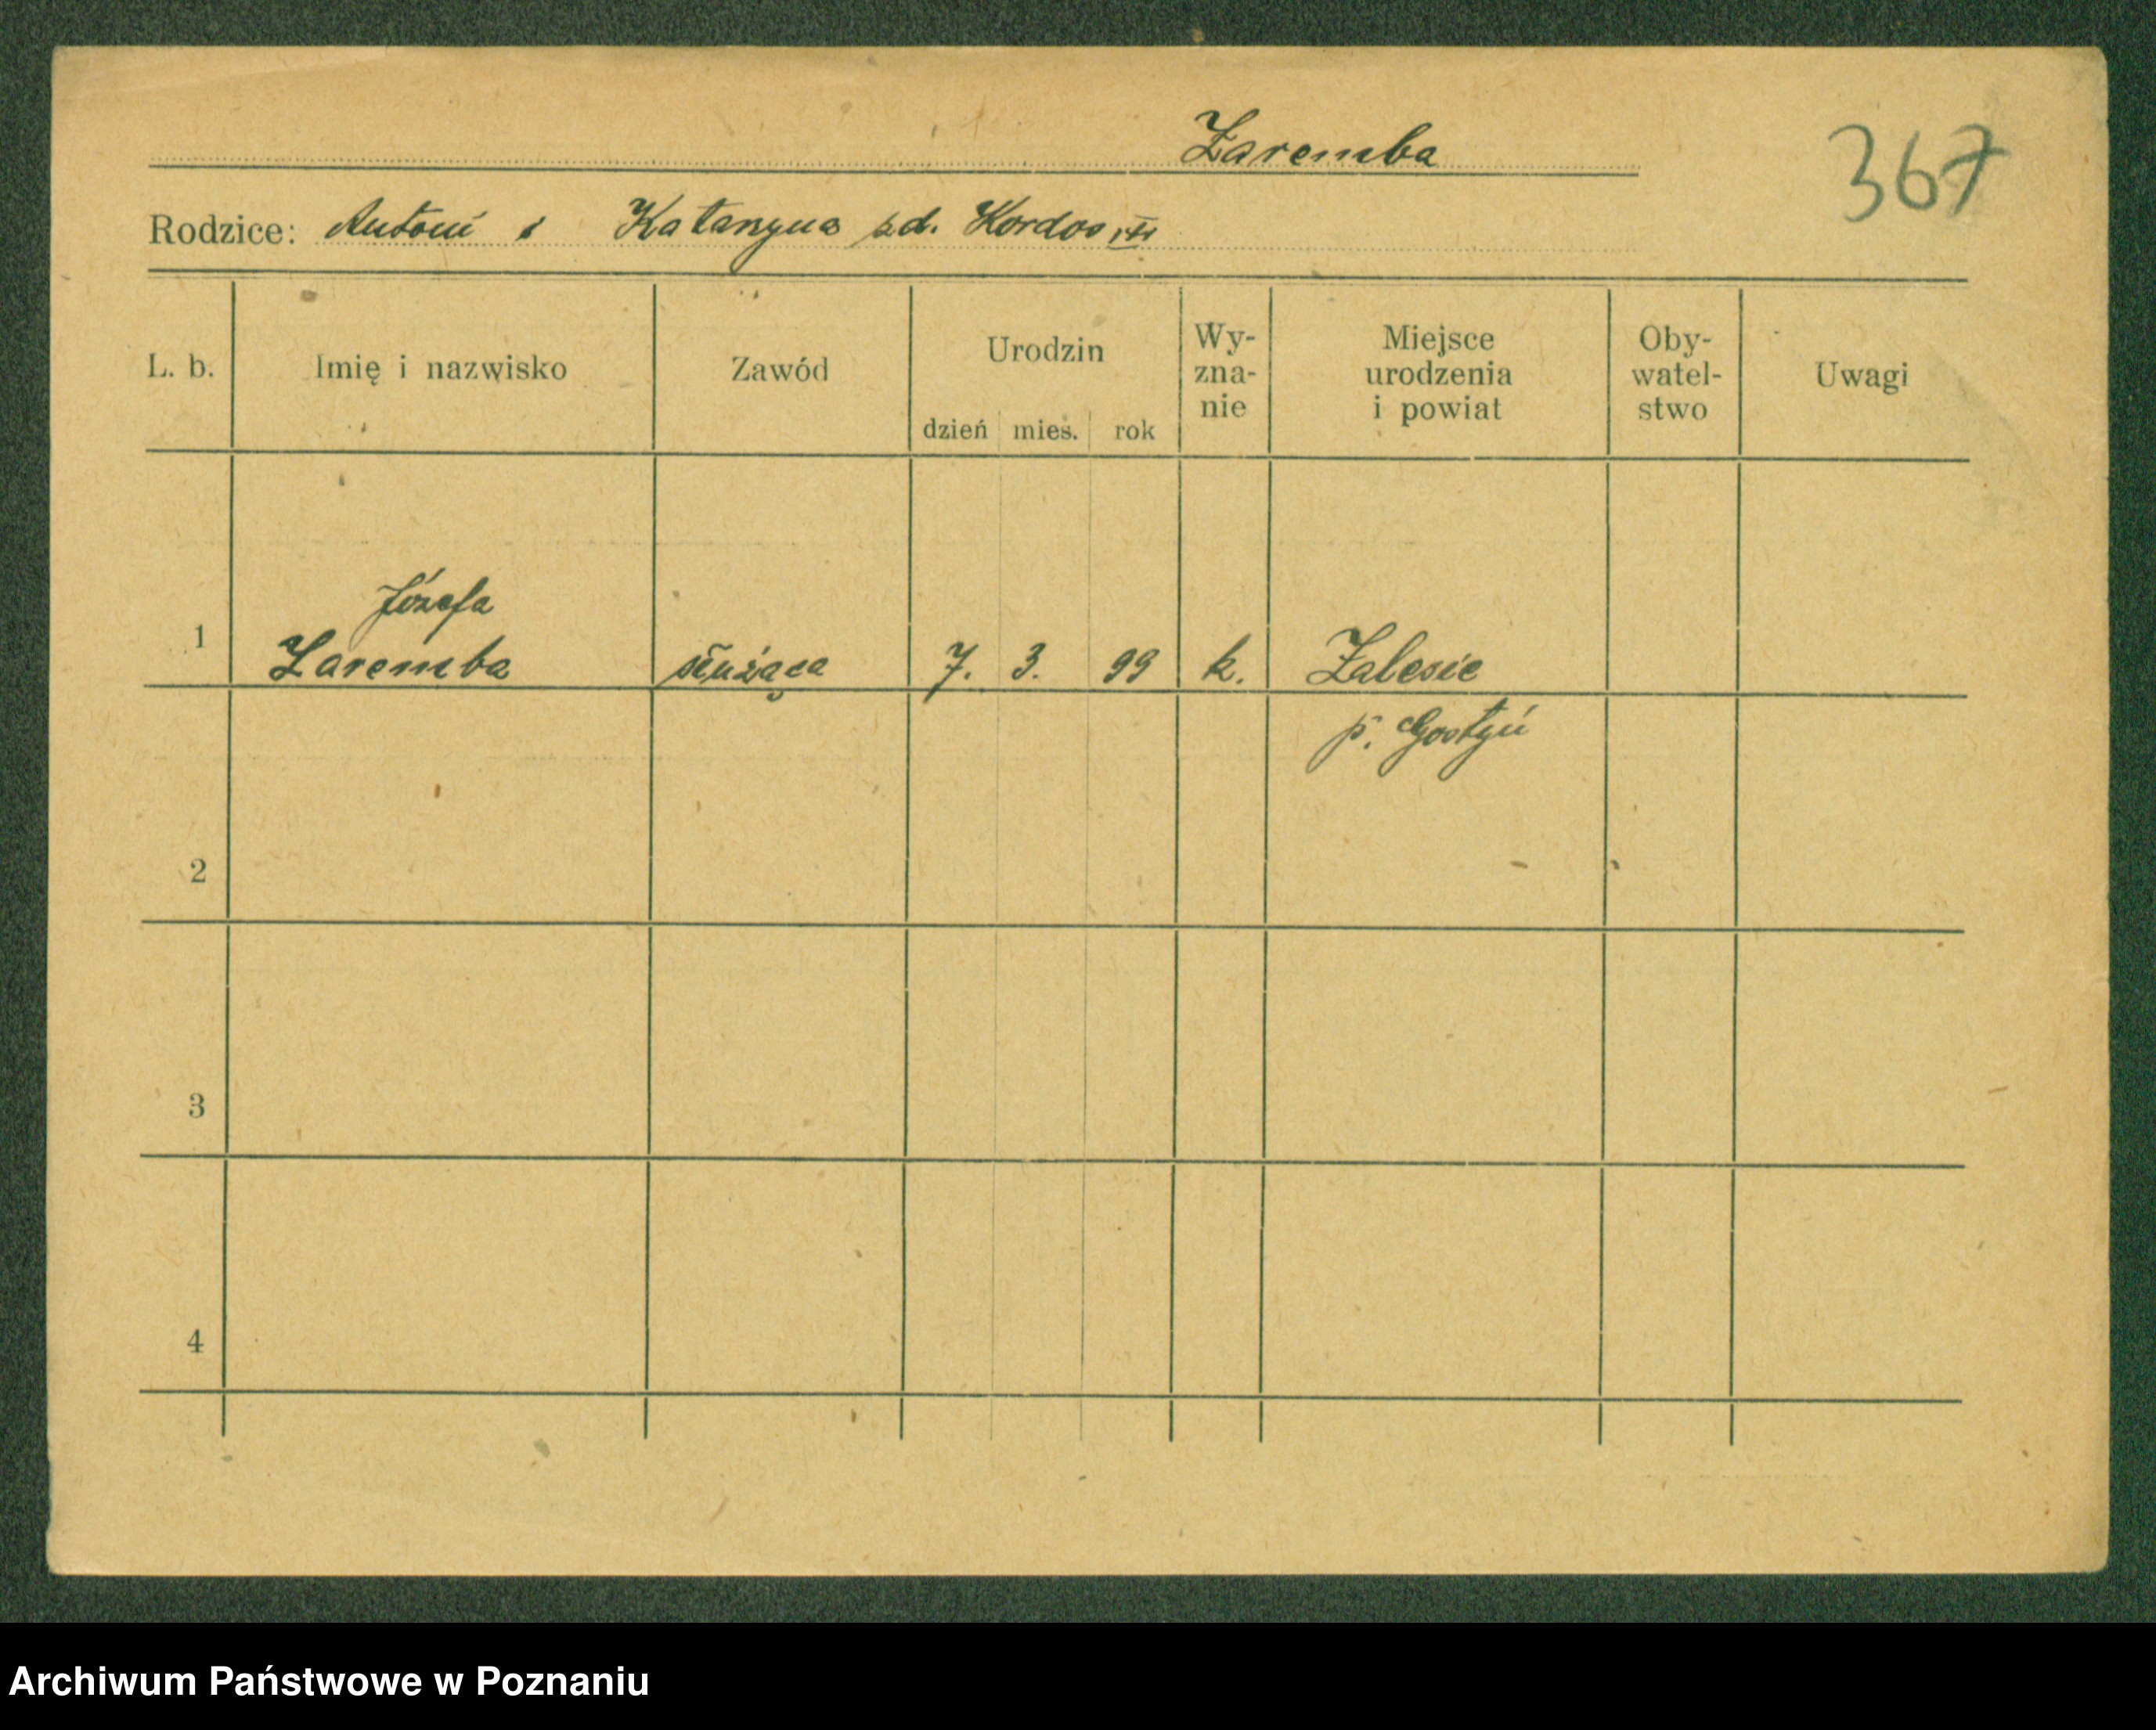 Zaremba
367
Rodzice: Antoni i Katarzyna zd. Kordos
L. b. Imię i nazwisko Zawód Urodzin dzień mies. rok Wy-zna-nie Miejsce urodzenia i powiat Oby-watel-stwo Uwagi
Józefa
1 Zaremba służąca 7. 3. 99 k. Zalesie
p. Gostyń
2
3
4
Archiwum Państwowe w Poznaniu